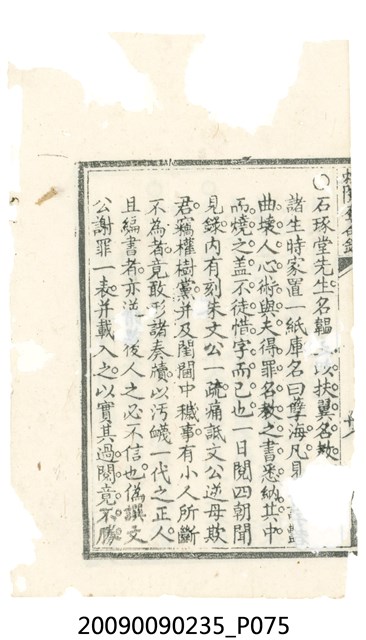 石琢堂先生名韞以扶翼名教
諸生時家置一紙庫名曰孽海凡見
曲壞人心術與夫得罪名教之書悉納其中
而燒之蓋不徒惜字而已也一日閱四朝聞
見錄內有刻朱文公一疏痛詆文公逆母欺
君竊權樹黨并及閨閫中穢事有小人所斷
不為者竟敢形諸奏牘以污衊一代之正人
且編書者亦逆後人之必不信也偽撰文
公謝罪一表并載入之以實其過閱竟不勝
20090090235_P075